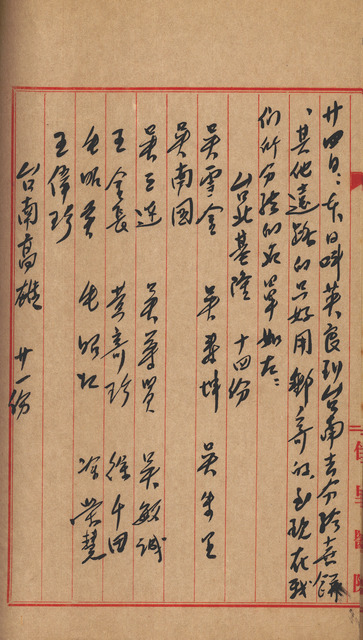 廿四日：本日時英良到台南去分給喜餅
、其他遠路的只好用郵寄的、到現在我
們所分給的名單如左：
台北基隆 十四份
吳雪金 吳秉坤 吳朱王
吳南圖
吳三連 吳尊賢 吳敏誠
王金長 黃奇珍 徐千田
毛昭 毛昭 榮慧
王偉珍
台南高雄 廿一份